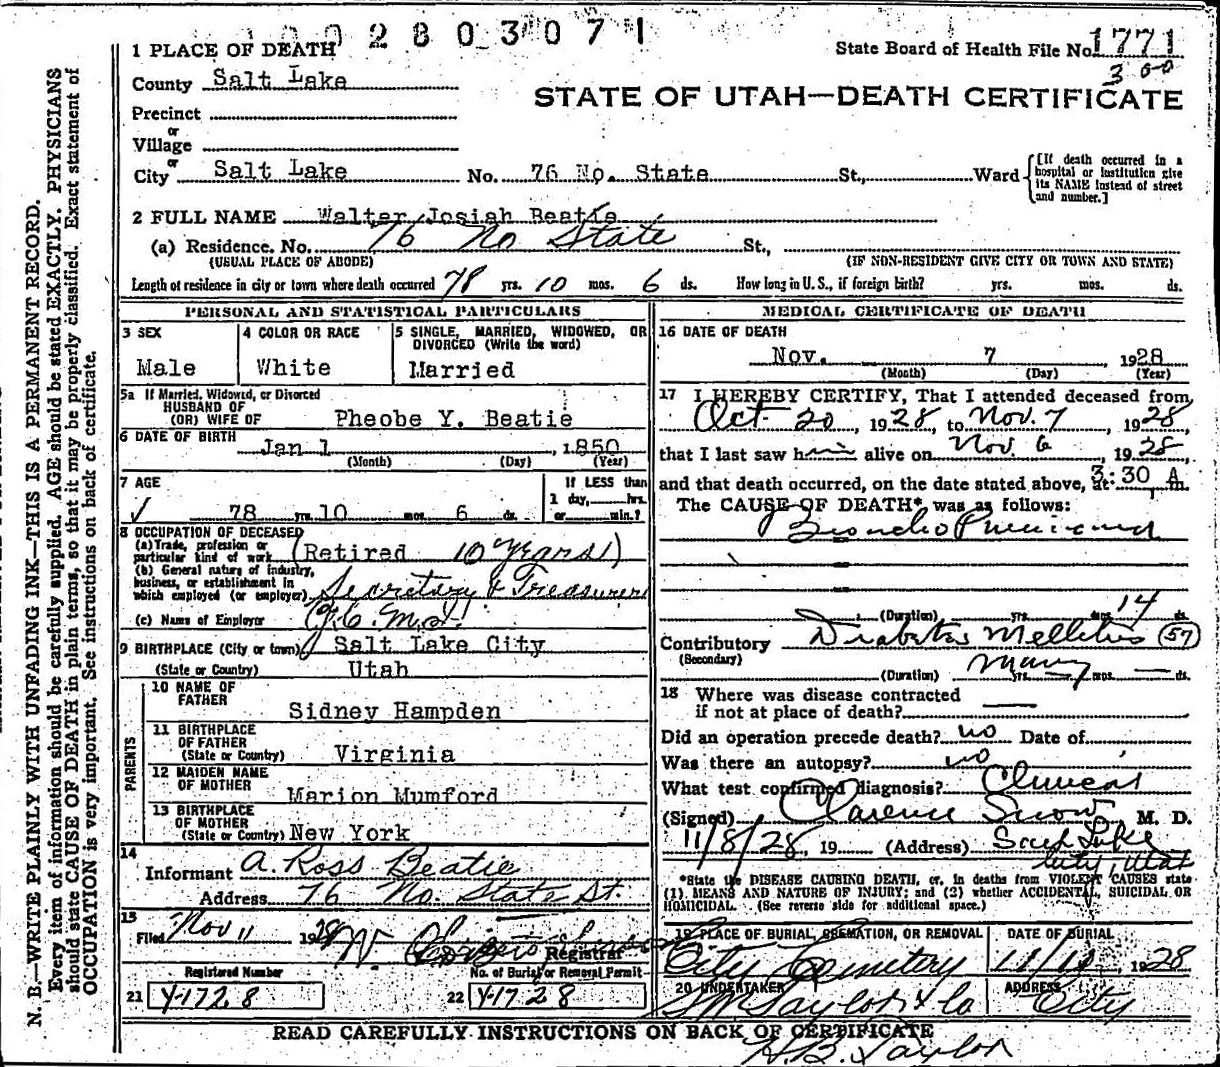 2803071
State Board of Health File No. 1771
300
1 PLACE OF DEATH
County Salt Lake
STATE OF UTAH—DEATH CERTIFICATE
Precinct
or
Village
or
City Salt Lake No. 76 No. State St., Ward
[If death occurred in a hospital or institution give its NAME instead of street and number.]
2 FULL NAME Walter Josiah Beatie
(a) Residence. No. 76 No State St.,
(USUAL PLACE OF ABODE) (IF NON-RESIDENT GIVE CITY OR TOWN AND STATE)
Length of residence in city or town where death occurred 78 yrs. 10 mos. 6 ds. How long in U. S., if foreign birth? yrs. mos. ds.
PERSONAL AND STATISTICAL PARTICULARS
3 SEX
Male
4 COLOR OR RACE
White
5 SINGLE, MARRIED, WIDOWED, OR DIVORCED (Write the word)
Married
5a If Married, Widowed, or Divorced
HUSBAND OF
(OR) WIFE OF Pheobe Y. Beatie
6 DATE OF BIRTH Jan 1, 1850
(Month) (Day) (Year)
7 AGE
78 yrs. 10 mos. 6 ds.
If LESS than
1 day, hrs.
or min.?
8 OCCUPATION OF DECEASED
(a) Trade, profession or particular kind of work (Retired 10 years)
(b) General nature of industry, business, or establishment in which employed (or employer) Secretary & Treasurer
(c) Name of Employer Z.C.M.I.
9 BIRTHPLACE (City or town) Salt Lake City
(State or Country) Utah
PARENTS
10 NAME OF FATHER
Sidney Hampden
11 BIRTHPLACE OF FATHER
(State or Country) Virginia
12 MAIDEN NAME OF MOTHER
Marion Mumford
13 BIRTHPLACE OF MOTHER
(State or Country) New York
14
Informant A. Ross Beatie
Address 76 No. State St.
15
Filed Nov 11 1928 Registrar
Registered Number
21 Y-1728
No. of Burial or Removal Permit
22 Y-1728
MEDICAL CERTIFICATE OF DEATH
16 DATE OF DEATH
Nov. 7 1928
(Month) (Day) (Year)
17 I HEREBY CERTIFY, That I attended deceased from
Oct. 20, 1928, to Nov. 7, 1928
that I last saw him alive on Nov. 6, 1928,
and that death occurred, on the date stated above, at 3:30 A m.
The CAUSE OF DEATH* was as follows:
Broncho Pneumonia
(Duration) yrs. mos. 14 ds.
Contributory Diabetes Mellitus (57)
(Secondary)
(Duration) many yrs. mos. ds.
18 Where was disease contracted
if not at place of death?
Did an operation precede death? no Date of
Was there an autopsy? no
What test confirmed diagnosis? Clinical
(Signed) Clarence Snow M. D.
11/8/28, 19 (Address) Salt Lake
City, Utah
*State the DISEASE CAUSING DEATH, or, in deaths from VIOLENT CAUSES state
(1) MEANS AND NATURE OF INJURY; and (2) whether ACCIDENTAL, SUICIDAL OR
HOMICIDAL. (See reverse side for additional space.)
19 PLACE OF BURIAL, CREMATION, OR REMOVAL
City Cemetery
DATE OF BURIAL
1928
20 UNDERTAKER
S M Taylor & Co
ADDRESS
City
READ CAREFULLY INSTRUCTIONS ON BACK OF CERTIFICATE
H.B. Taylor
N. B.—WRITE PLAINLY WITH UNFADING INK—THIS IS A PERMANENT RECORD.
Every item of information should be carefully supplied. AGE should be stated EXACTLY. PHYSICIANS
should state CAUSE OF DEATH in plain terms, so that it may be properly classified. Exact statement of
OCCUPATION is very important. See instructions on back of certificate.